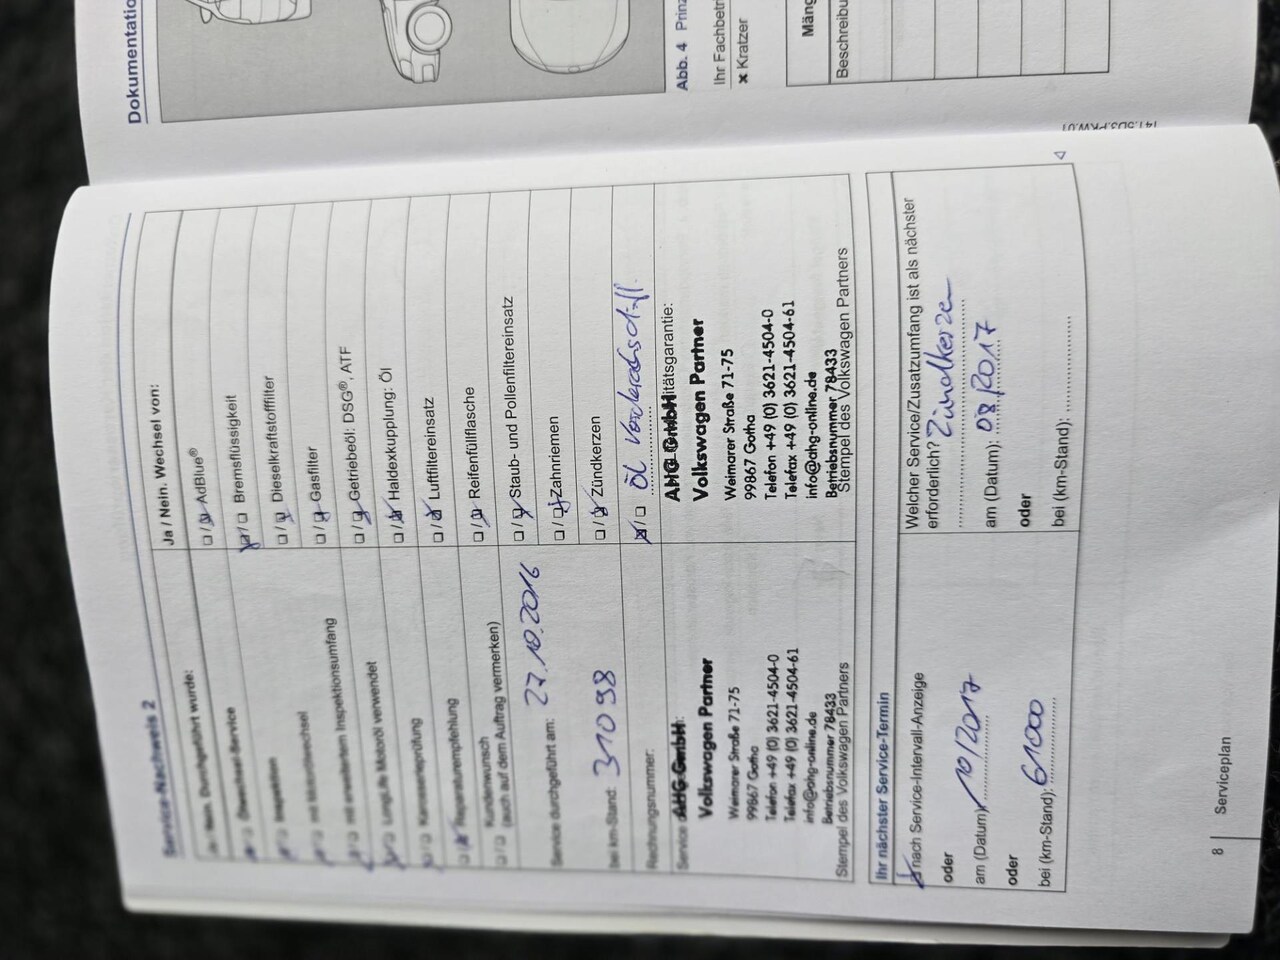 Dokumentatio
Abb. 4 Prinz
Ihr Fachbetr
✖ Kratzer
Mäng
Beschreibu
Service-Nachweis 2
Ja / Nein. Durchgeführt wurde:
Ölwechsel-Service
Inspektion
mit Motorölwechsel
mit erweitertem Inspektionsumfang
LongLife Motoröl verwendet
Karosserieprüfung
Reparaturempfehlung
Kundenwunsch
(auch auf dem Auftrag vermerken)
Service durchgeführt am: 27.10.2016
bei km-Stand: 31098
Rechnungsnummer:
Service
AHG GmbH
Volkswagen Partner
Weimarer Straße 71-75
99867 Gotha
Telefon +49 (0) 3621-4504-0
Telefax +49 (0) 3621-4504-61
info@ahg-online.de
Betriebsnummer 78433
Stempel des Volkswagen Partners
Ja / Nein. Wechsel von:
AdBlue®
Bremsflüssigkeit
Dieselkraftstofffilter
Gasfilter
Getriebeöl: DSG®, ATF
Haldexkupplung: Öl
Luftfiltereinsatz
Reifenfüllflasche
Staub- und Pollenfiltereinsatz
Zahnriemen
Zündkerzen
Öl Vorderachsdiff.
litätsgarantie:
AHG GmbH
Volkswagen Partner
Weimarer Straße 71-75
99867 Gotha
Telefon +49 (0) 3621-4504-0
Telefax +49 (0) 3621-4504-61
info@ahg-online.de
Betriebsnummer 78433
Stempel des Volkswagen Partners
Ihr nächster Service-Termin
nach Service-Intervall-Anzeige
oder
am (Datum) 10/2017
oder
bei (km-Stand): 61000
Welcher Service/Zusatzumfang ist als nächster
erforderlich? Zündkerzen
am (Datum): 08/2017
oder
bei (km-Stand):
8 Serviceplan
141.5D3.PKW.01